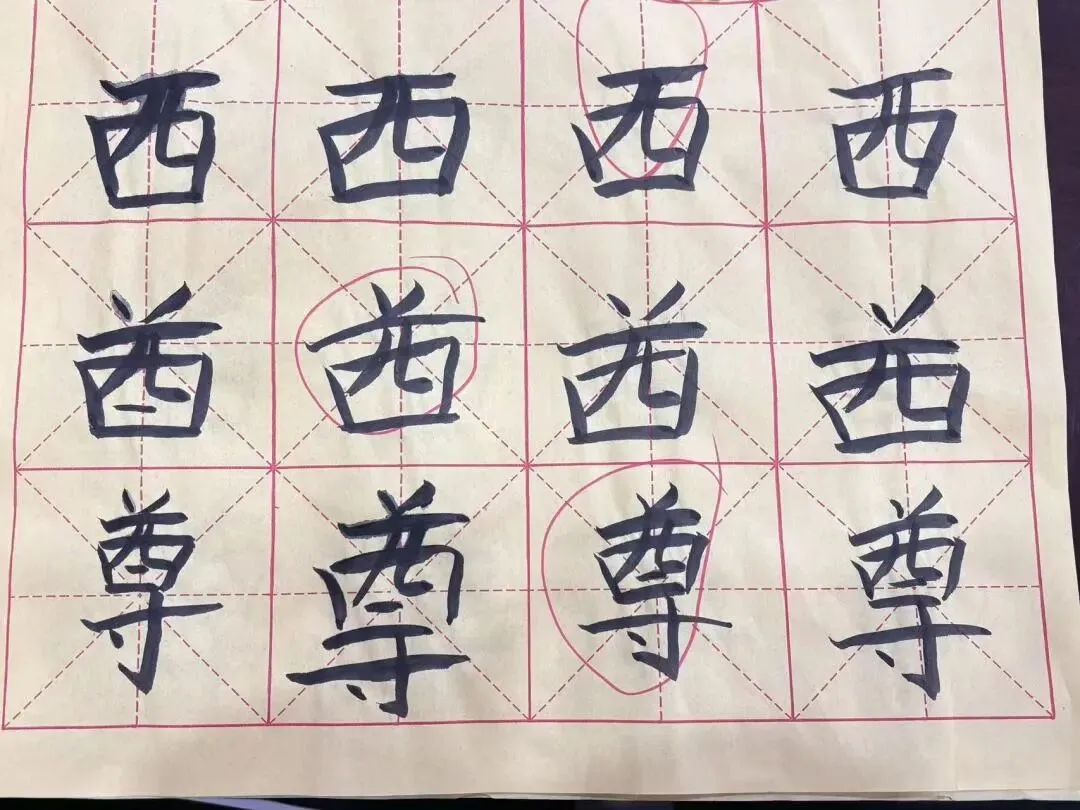 西西西西
酋酋酋酋
尊尊尊尊